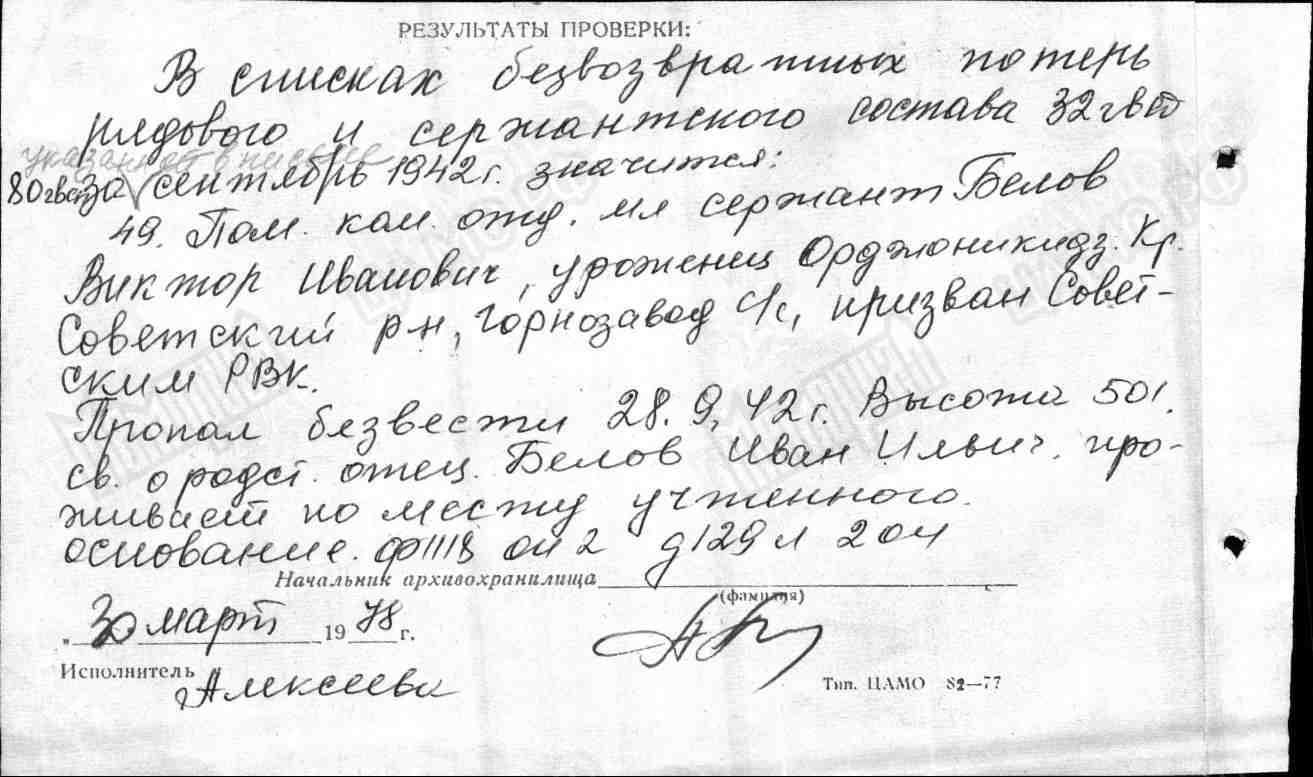 РЕЗУЛЬТАТЫ ПРОВЕРКИ:
В списках безвозвратных потерь
рядового и сержантского состава 32 гв сд
указанной в письме
80 гв сп за сентябрь 1942 г. значится:
49. Пом. ком. отд. мл сержант Белов
Виктор Иванович, уроженец Орджоникидз. Кр.
Советский р-н, Горнозавод с/с, призван Совет-
ским РВК.
Пропал безвести 28.9.42 г. Высота 501.
св. о родст. отец. Белов Иван Ильич. про-
живает по месту учтенного.
основание. ф 1118 оп 2 д 129 л 204
Начальник архивохранилища
(фамилия)
„30 март 1978 г.
Исполнитель Алексеева
Тип. ЦАМО 82—77